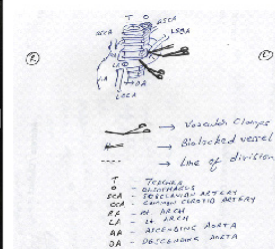 T O
RCCA LCCA
RSCA LSCA
RA LA
AA DA
(R) (L)
→ Vascular Clamps
→ Bisected vessel
---- → Line of division
T - TRACHEA
O - OESOPHAGUS
SCA - SUBCLAVIAN ARTERY
CCA - COMMON CAROTID ARTERY
RA - Rt. ARCH
LA - Lt. ARCH
AA - ASCENDING AORTA
DA - DESCENDING AORTA